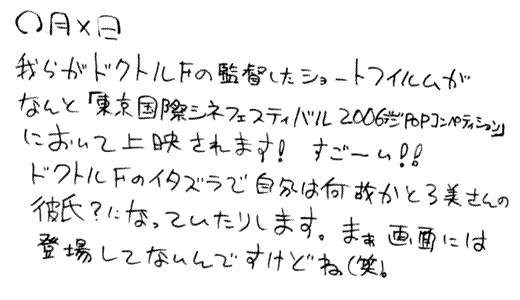 〇月×日
我らがドクトルFの監督したショートフィルムが
なんと「東京国際シネフェスティバル2006デジPOPコンペティション」
において上映されます! すごーい!!
ドクトルFのイタズラで自分は何故かとろ美さんの
彼氏?になっていたりします。まぁ画面には
登場してないんですけどね(笑。